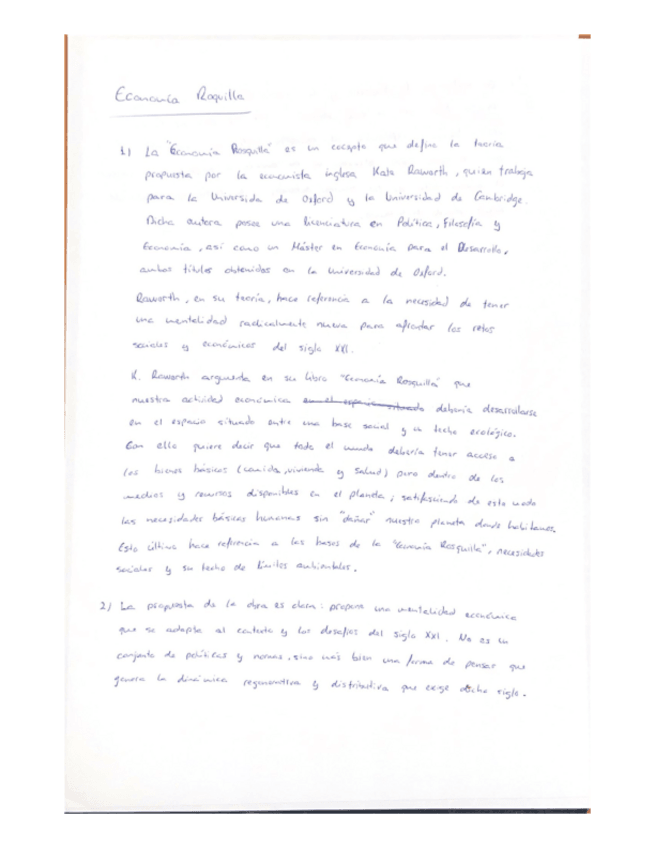 Economía Roquilla
1) La "Economía Rosquilla" es un cocepto que define la teoría
propuesta por la economista inglesa Kate Raworth, quien trabaja
para la Universida de Oxford y la Universidad de Cambridge.
Dicha autora posee una licenciatura en Política, Filosofía y
Economía, así como un Máster en Economía para el Desarrollo,
ambos títulos obtenidos en la Universidad de Oxford.
Raworth, en su teoría, hace referencia a la necesidad de tener
una mentalidad radicalmente nueva para afrontar los retos
sociales y económicos del siglo XXI.
K. Raworth argumenta en su libro "Economía Rosquilla" que
nuestra actividad económica en el espacio situado debería desarrollarse
en el espacio situado entre una base social y un techo ecológico.
Con ello quiere decir que todo el mundo debería tener acceso a
los bienes básicos (comida, vivienda y salud) pero dentro de los
medios y recursos disponibles en el planeta; satisfaciendo de este modo
las necesidades básicas humanas sin "dañar" nuestro planeta donde habitamos.
Esto último hace referencia a las bases de la "Economía Rosquilla", necesidades
sociales y su techo de límites ambientales.
2) La propuesta de la obra es clara: propone una mentalidad económica
que se adapte al contexto y los desafíos del siglo XXI. No es un
conjunto de políticas y normas, sino más bien una forma de pensar que
genera la dinámica regenerativa y distributiva que exige dicho siglo.